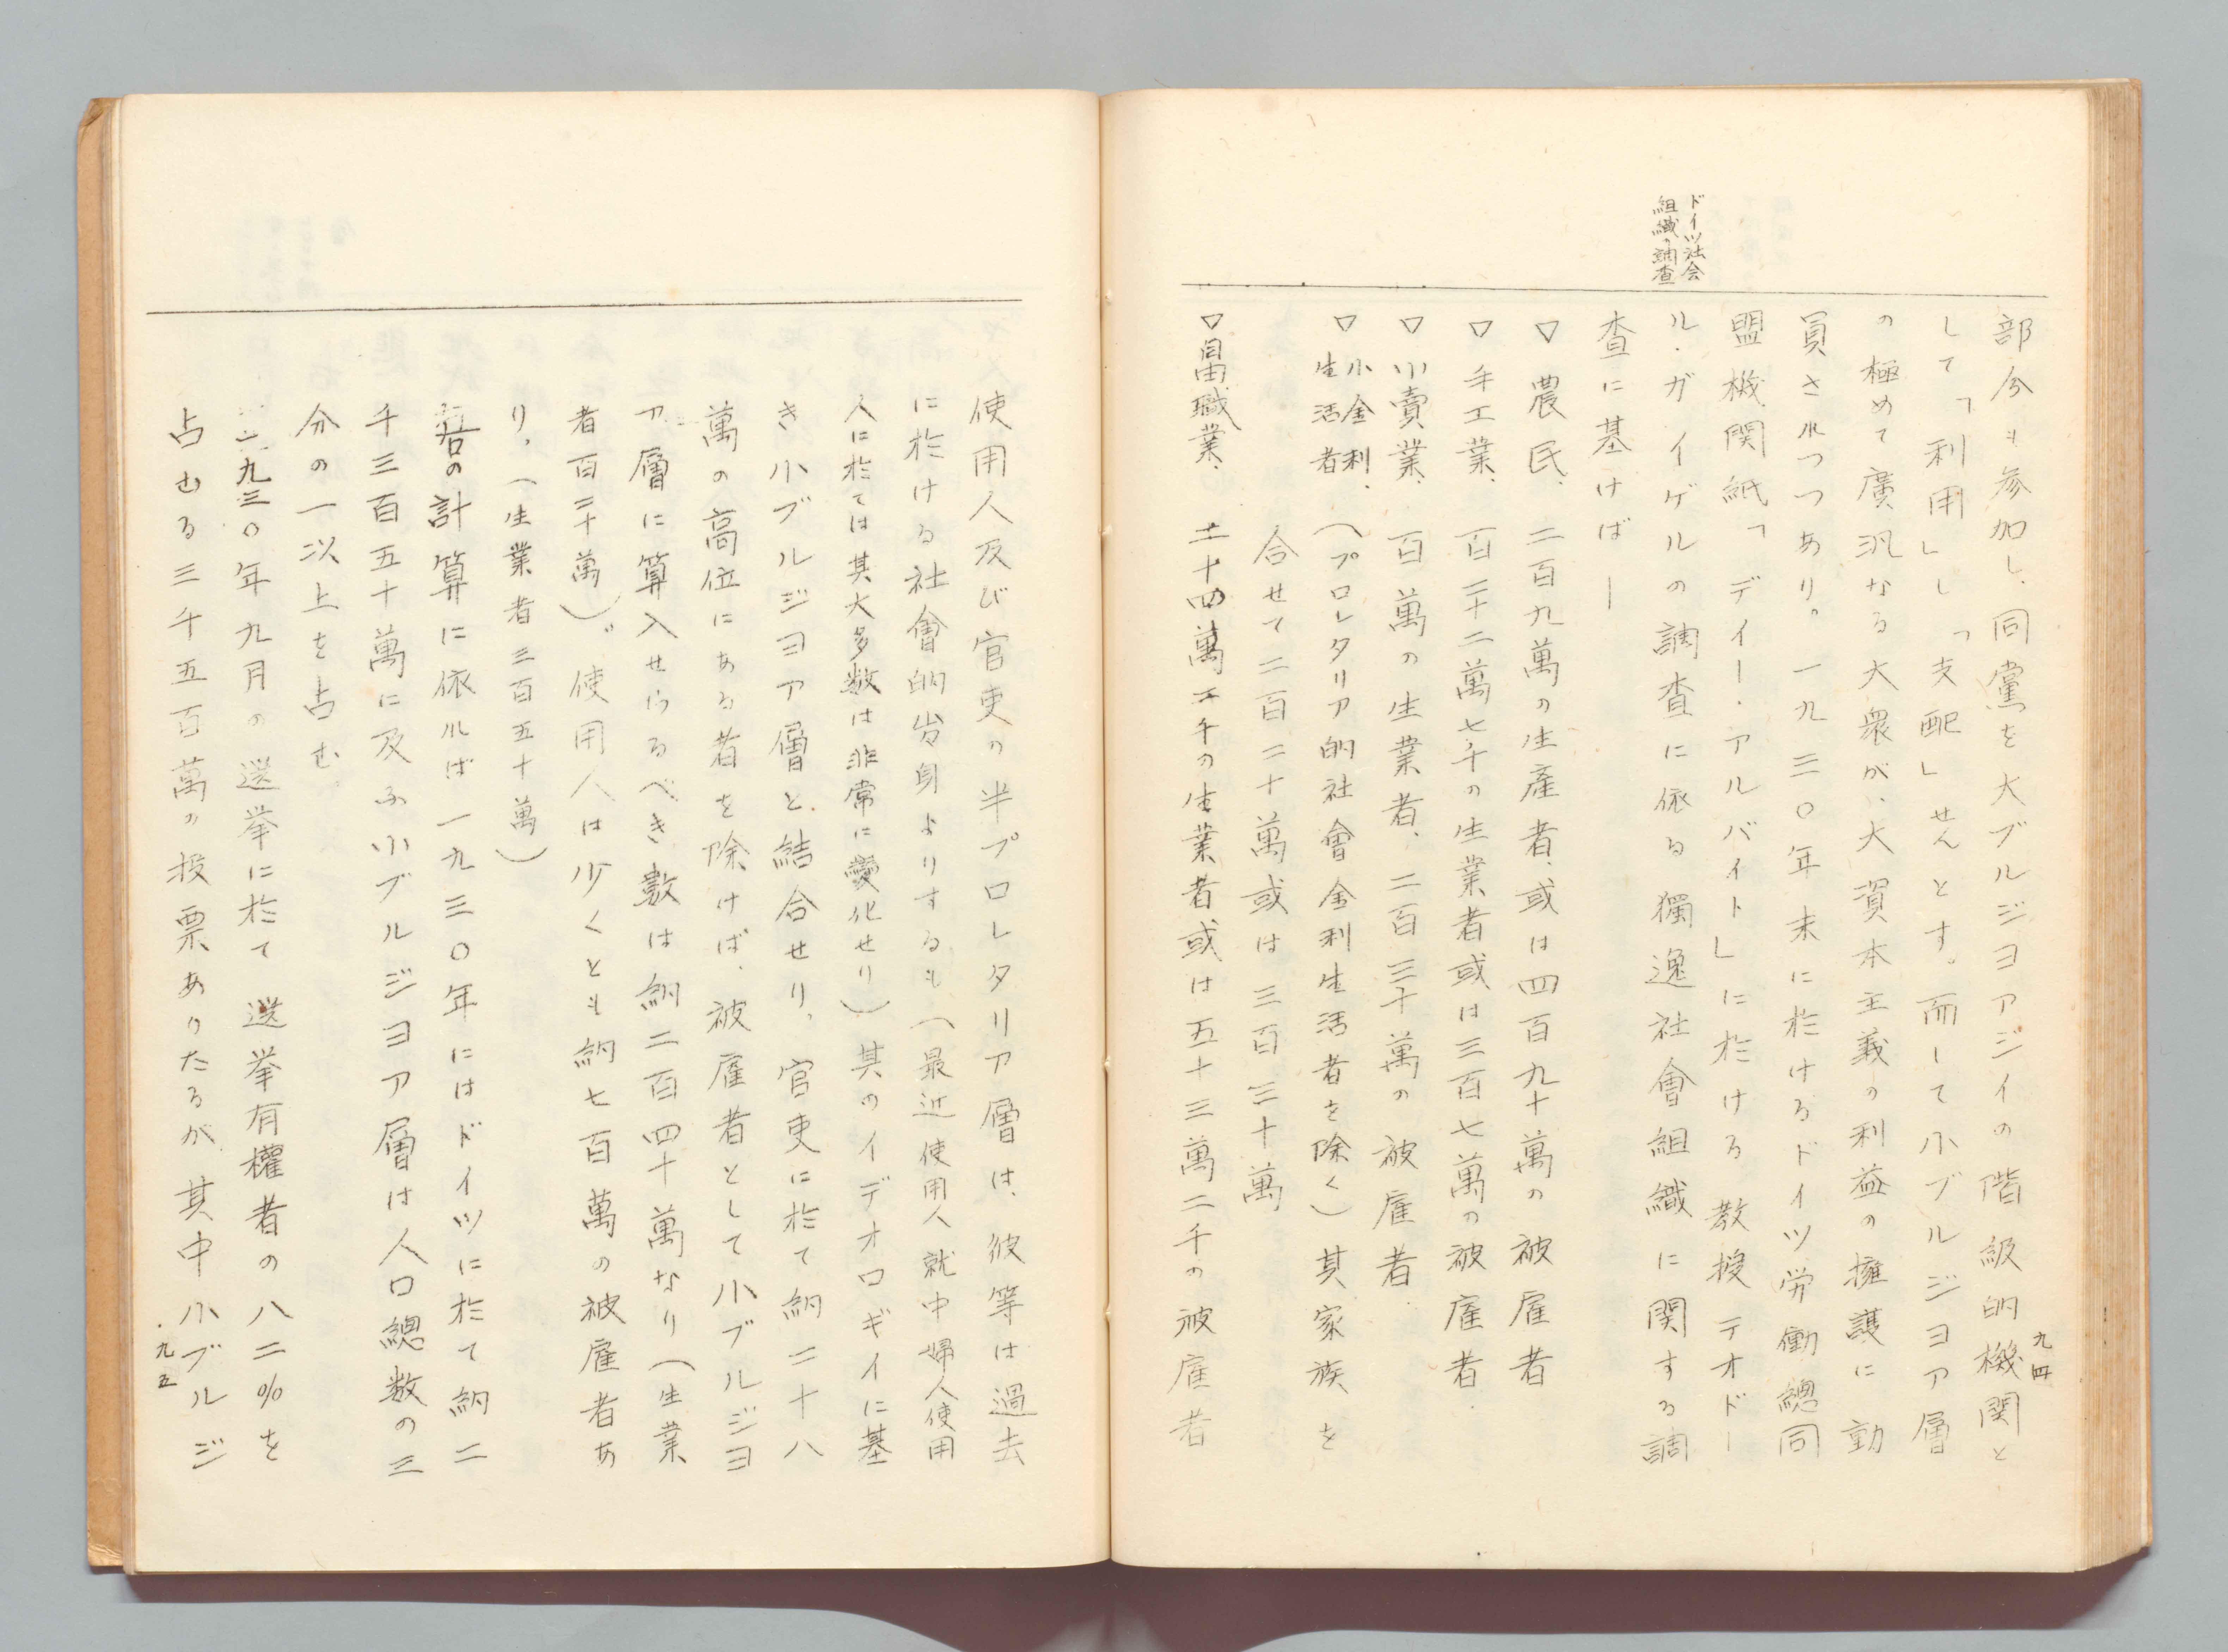 九四
ドイツ社会
組織の調査
部分も参加し、同黨を大ブルジヨアジイの階級的機関と
して「利用」し「支配」せんとす。而して小ブルジヨア層
の極めて廣汎なる大衆が、大資本主義の利益の擁護に動
員されつつあり。一九三〇年末に於けるドイツ労働總同
盟機関紙「デイー・アルバイト」に於ける教授テオドー
ル・ガイゲルの調査に依る獨逸社會組織に関する調
査に基けば―
▽農民、二百九萬の生産者、或は四百九十萬の被雇者
▽手工業、百三十二萬七千の生業者或は三百七萬の被雇者、
▽小賣業、百萬の生業者、二百三十萬の被雇者、
▽小金利生活者、(プロレタリア的社會金利生活者を除く)其家族を
合せて二百二十萬或は三百三十萬
▽自由職業、二十四萬二千の生業者或は五十三萬二千の被雇者
使用人及び官吏の半プロレタリア層は、彼等は過去
に於ける社會的出身よりするも(最近使用人就中婦人使用
人に於ては其大多数は非常に変化せり)其のイデオロギイに基
き小ブルジヨア層と結合せり、官吏に於て約二十八
萬の高位にある者を除けば、被雇者として小ブルジヨ
ア層に算入せらるべき數は約二百四十萬なり(生業
者百三十萬)。使用人は少くとも約七百萬の被雇者あ
り、(生業者三百五十萬)
右の計算に依れば一九三〇年にはドイツに於て約二
千三百五十萬に及ぶ小ブルジヨア層は人口總数の三
分の一以上を占む。
一九三〇年九月の選挙に於て選挙有權者の八二%を
占むる三千五百萬の投票ありたるが其中小ブルジ
九五